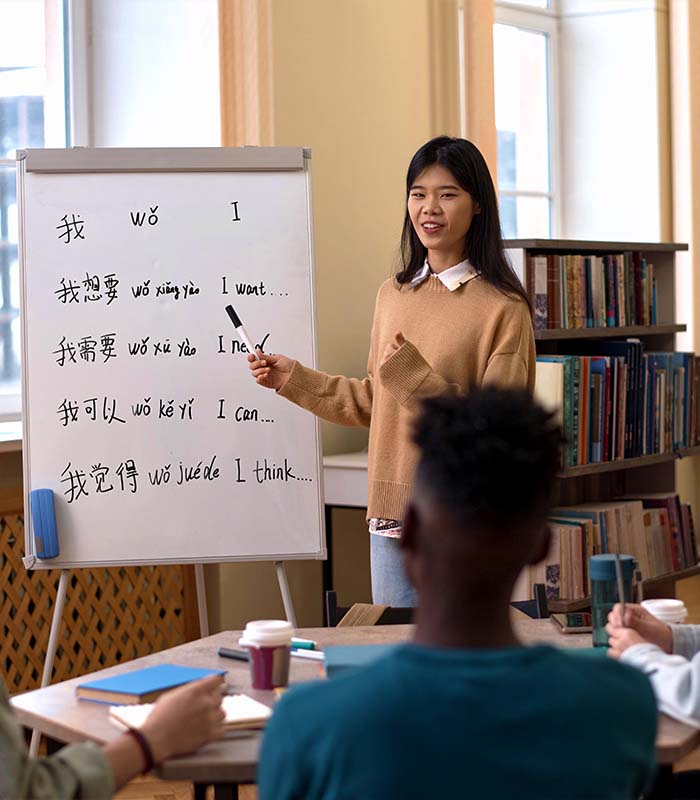 我 wǒ I
我想要 wǒ xiǎng yào I want....
我需要 wǒ xū yào I need..
我可以 wǒ kě yǐ I can...
我觉得 wǒ juéde I think....